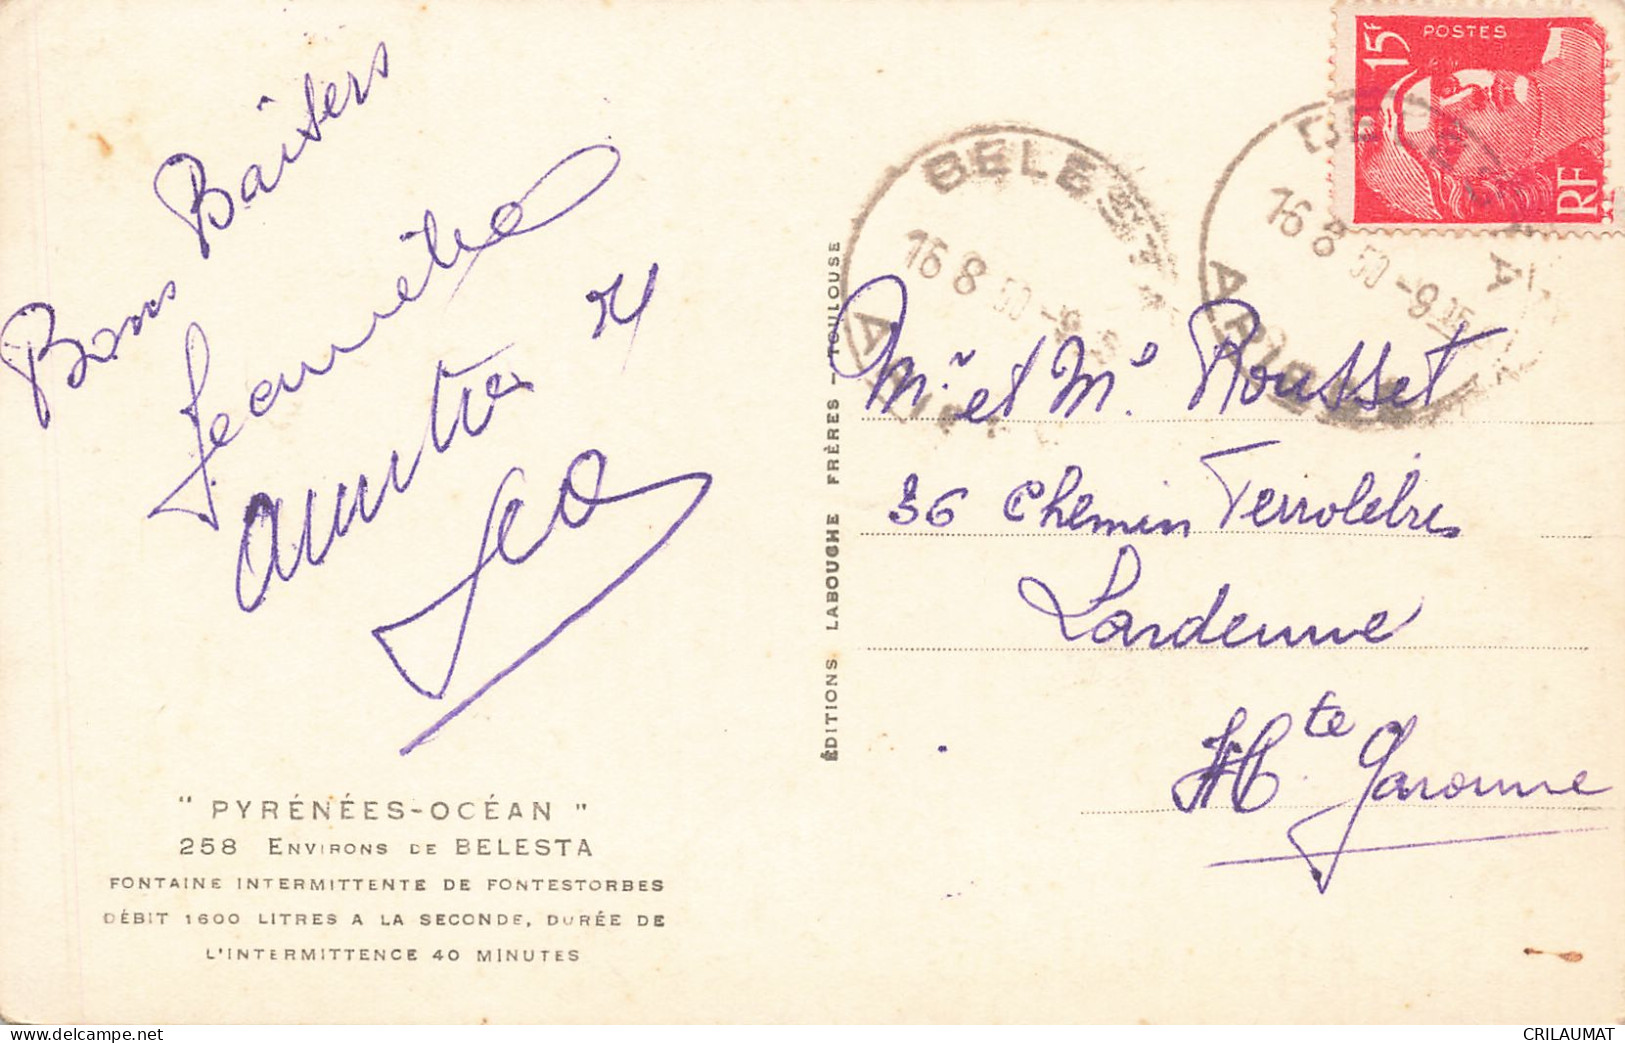 Bons Baisers
Jeannette
Léo
" PYRÉNÉES-OCÉAN "
258 ENVIRONS DE BELESTA
FONTAINE INTERMITTENTE DE FONTESTORBES
DÉBIT 1600 LITRES A LA SECONDE, DURÉE DE
L'INTERMITTENCE 40 MINUTES
ÉDITIONS LABOUCHE FRÈRES – TOULOUSE
POSTES
15F
RF
BELESTA
16 8 50
ARIEGE
BELESTA
16 8 50
ARIEGE
Mr et Me Rousset
36 Chemin Ferrolebres
Lardenne
Hte Garonne
CRILAUMAT